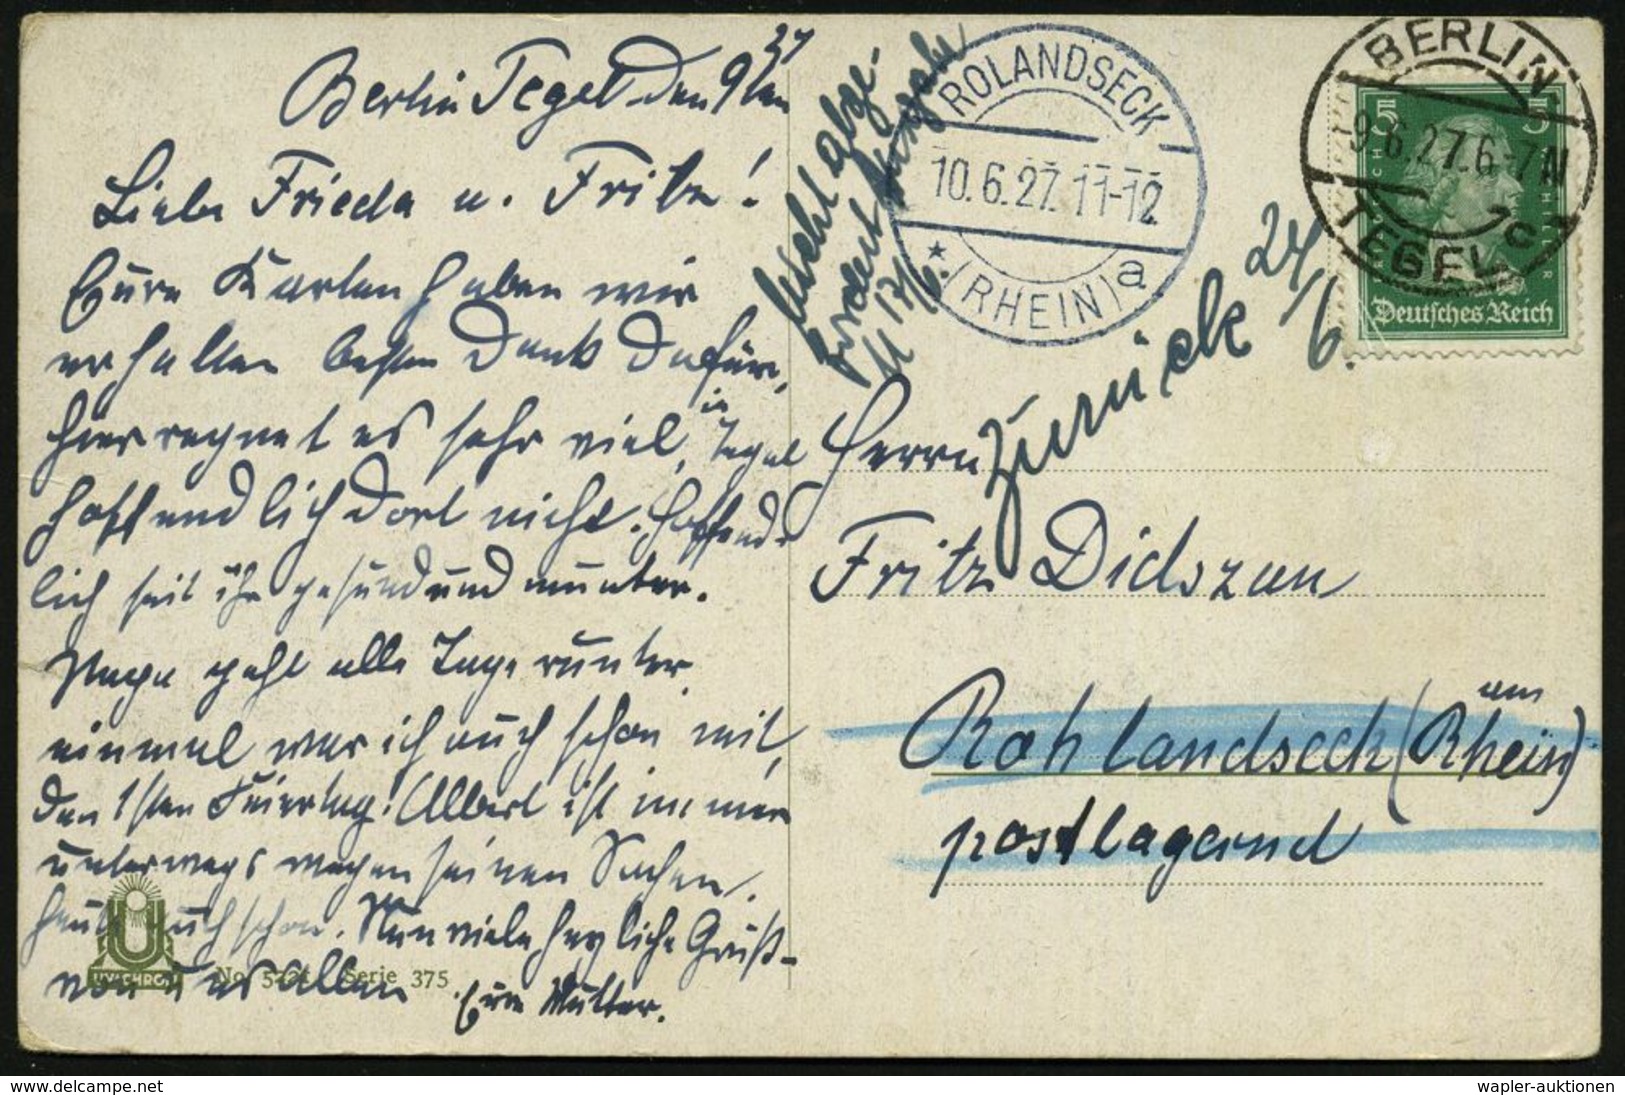 Berlin Tegel den 9ten 27
Liebe Frieda u. Fritz!
Eure Karten haben wir
erhalten besten Dank dafür,
hier regnet es sehr viel, in Tegel
hoffendlich dort nicht. Hoffend-
lich seit ihr gesund und munter.
Papa geht alle Tage runter
einmal war ich auch schon mit,
den 1sten Feiertag! Albert ist immer
unterwegs wegen seinen Sachen,
heute auch schon. Nun viele herzliche Grüß-
von uns Allen Eure Mutter.
No 5221 Serie 375
nicht abge-
fordert
17/6.
ROLANDSECK
10.6.27. 11-12
* (RHEIN) a
BERLIN
9.6.27. 6-7 N
TEGEL
c
5 5
Deutsches Reich
zurück 24/6.
Herrn
Fritz Didszun
Rohlandseck (am Rhein)
postlagernd
delcampe.net
wapler-auktionen